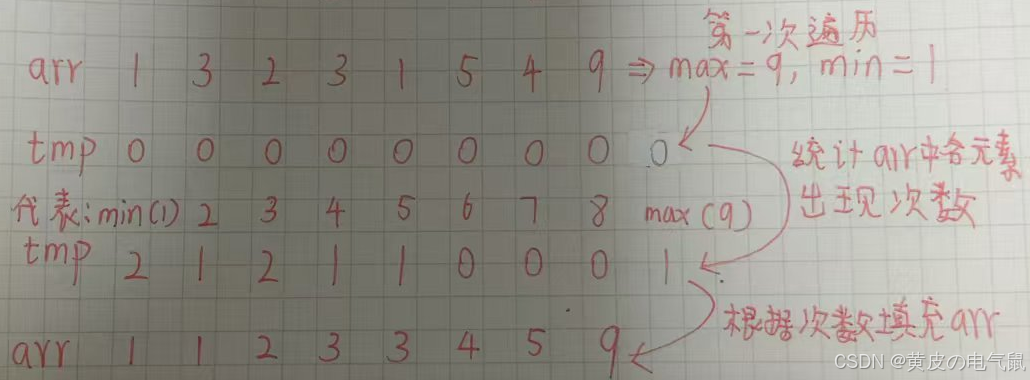 第一次遍历
arr 1 3 2 3 1 5 4 9 ⇒ max=9, min=1
tmp 0 0 0 0 0 0 0 0 0
统计arr中各元素
出现次数
代表:min(1) 2 3 4 5 6 7 8 max(9)
tmp 2 1 2 1 1 0 0 0 1
根据次数填充arr
arr 1 1 2 3 3 4 5 9
CSDN @黄皮の电气鼠